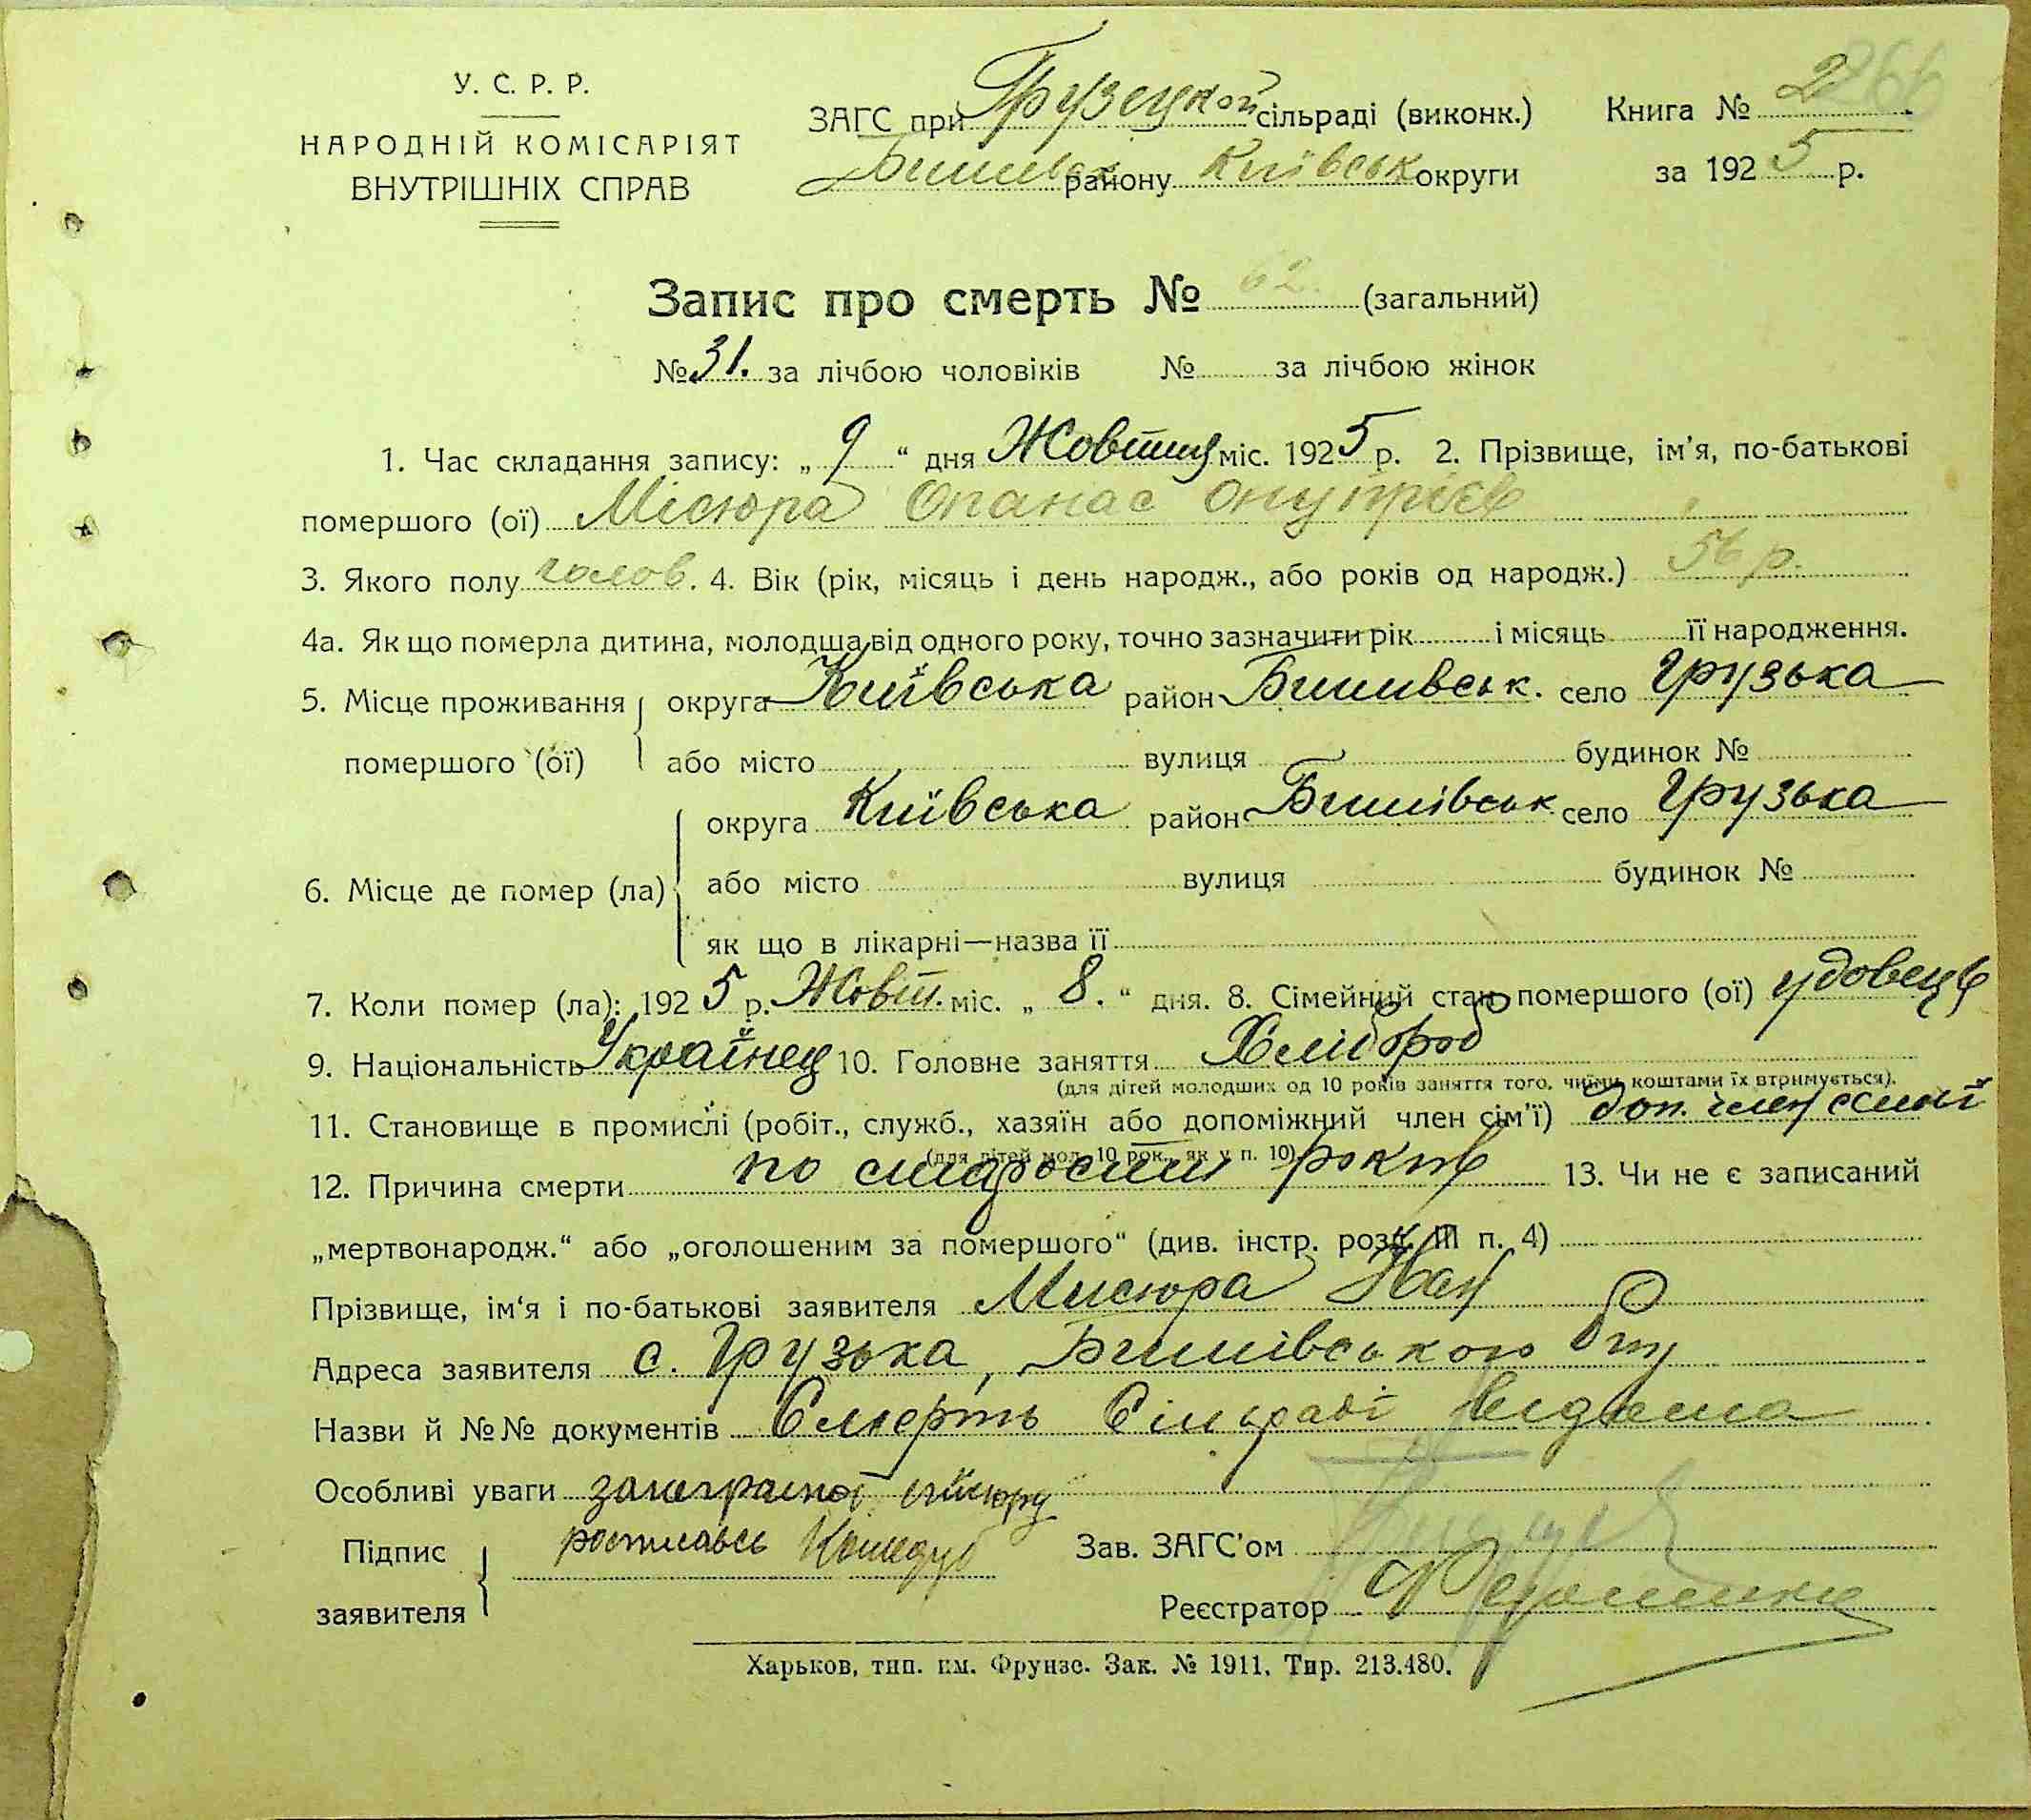 У. С. Р. Р.
НАРОДНІЙ КОМІСАРІЯТ
ВНУТРІШНІХ СПРАВ
ЗАГС при Грузецкой сільраді (виконк.)
района Київськ округи
Книга № 2
за 1925 р.
Запис про смерть № 62. (загальний)
№ 31. за лічбою чоловіків № за лічбою жінок
1. Час складання запису: „ 9 “ дня Жовтня міс. 1925 р. 2. Прізвище, ім’я, по-батькові
помершого (ої) Місюра Опанас Онупрієв
3. Якого полу чолов. 4. Вік (рік, місяць і день народж., або років од народж.) 56 р.
4а. Як що померла дитина, молодша від одного року, точно зазначити рік і місяць її народження.
5. Місце проживання округа Київська район Бишивськ. село Грузька
помершого (ої) або місто вулиця будинок №
округа Київська район Бишівськ село Грузька
6. Місце де помер (ла) або місто вулиця будинок №
як що в лікарні—назва її
7. Коли помер (ла): 1925 р. Жовт. міс. „ 8. “ дня. 8. Сімейний стан помершого (ої) удовець
9. Національність Українец 10. Головне заняття Хлібороб
(для дітей молодших од 10 років заняття того, чиїми коштами їх втримується).
11. Становище в промислі (робіт., служб., хазяїн або допоміжний член сім’ї) доп. член
(для дітей мол. 10 рок., як у п. 10)
12. Причина смерти по старости років 13. Чи не є записаний
„мертвонародж.“ або „оголошеним за помершого“ (див. інстр. розд. III п. 4)
Прізвище, ім‘я і по-батькові заявителя Мисюра
Адреса заявителя с. Грузька, Бишівського
Назви й №№ документів Смерть Сільраді відома
Особливі уваги
Підпис
заявителя
Зав. ЗАГС’ом
Реєстратор
Харьков, тип. им. Фрунзе. Зак. № 1911. Тир. 213.480.